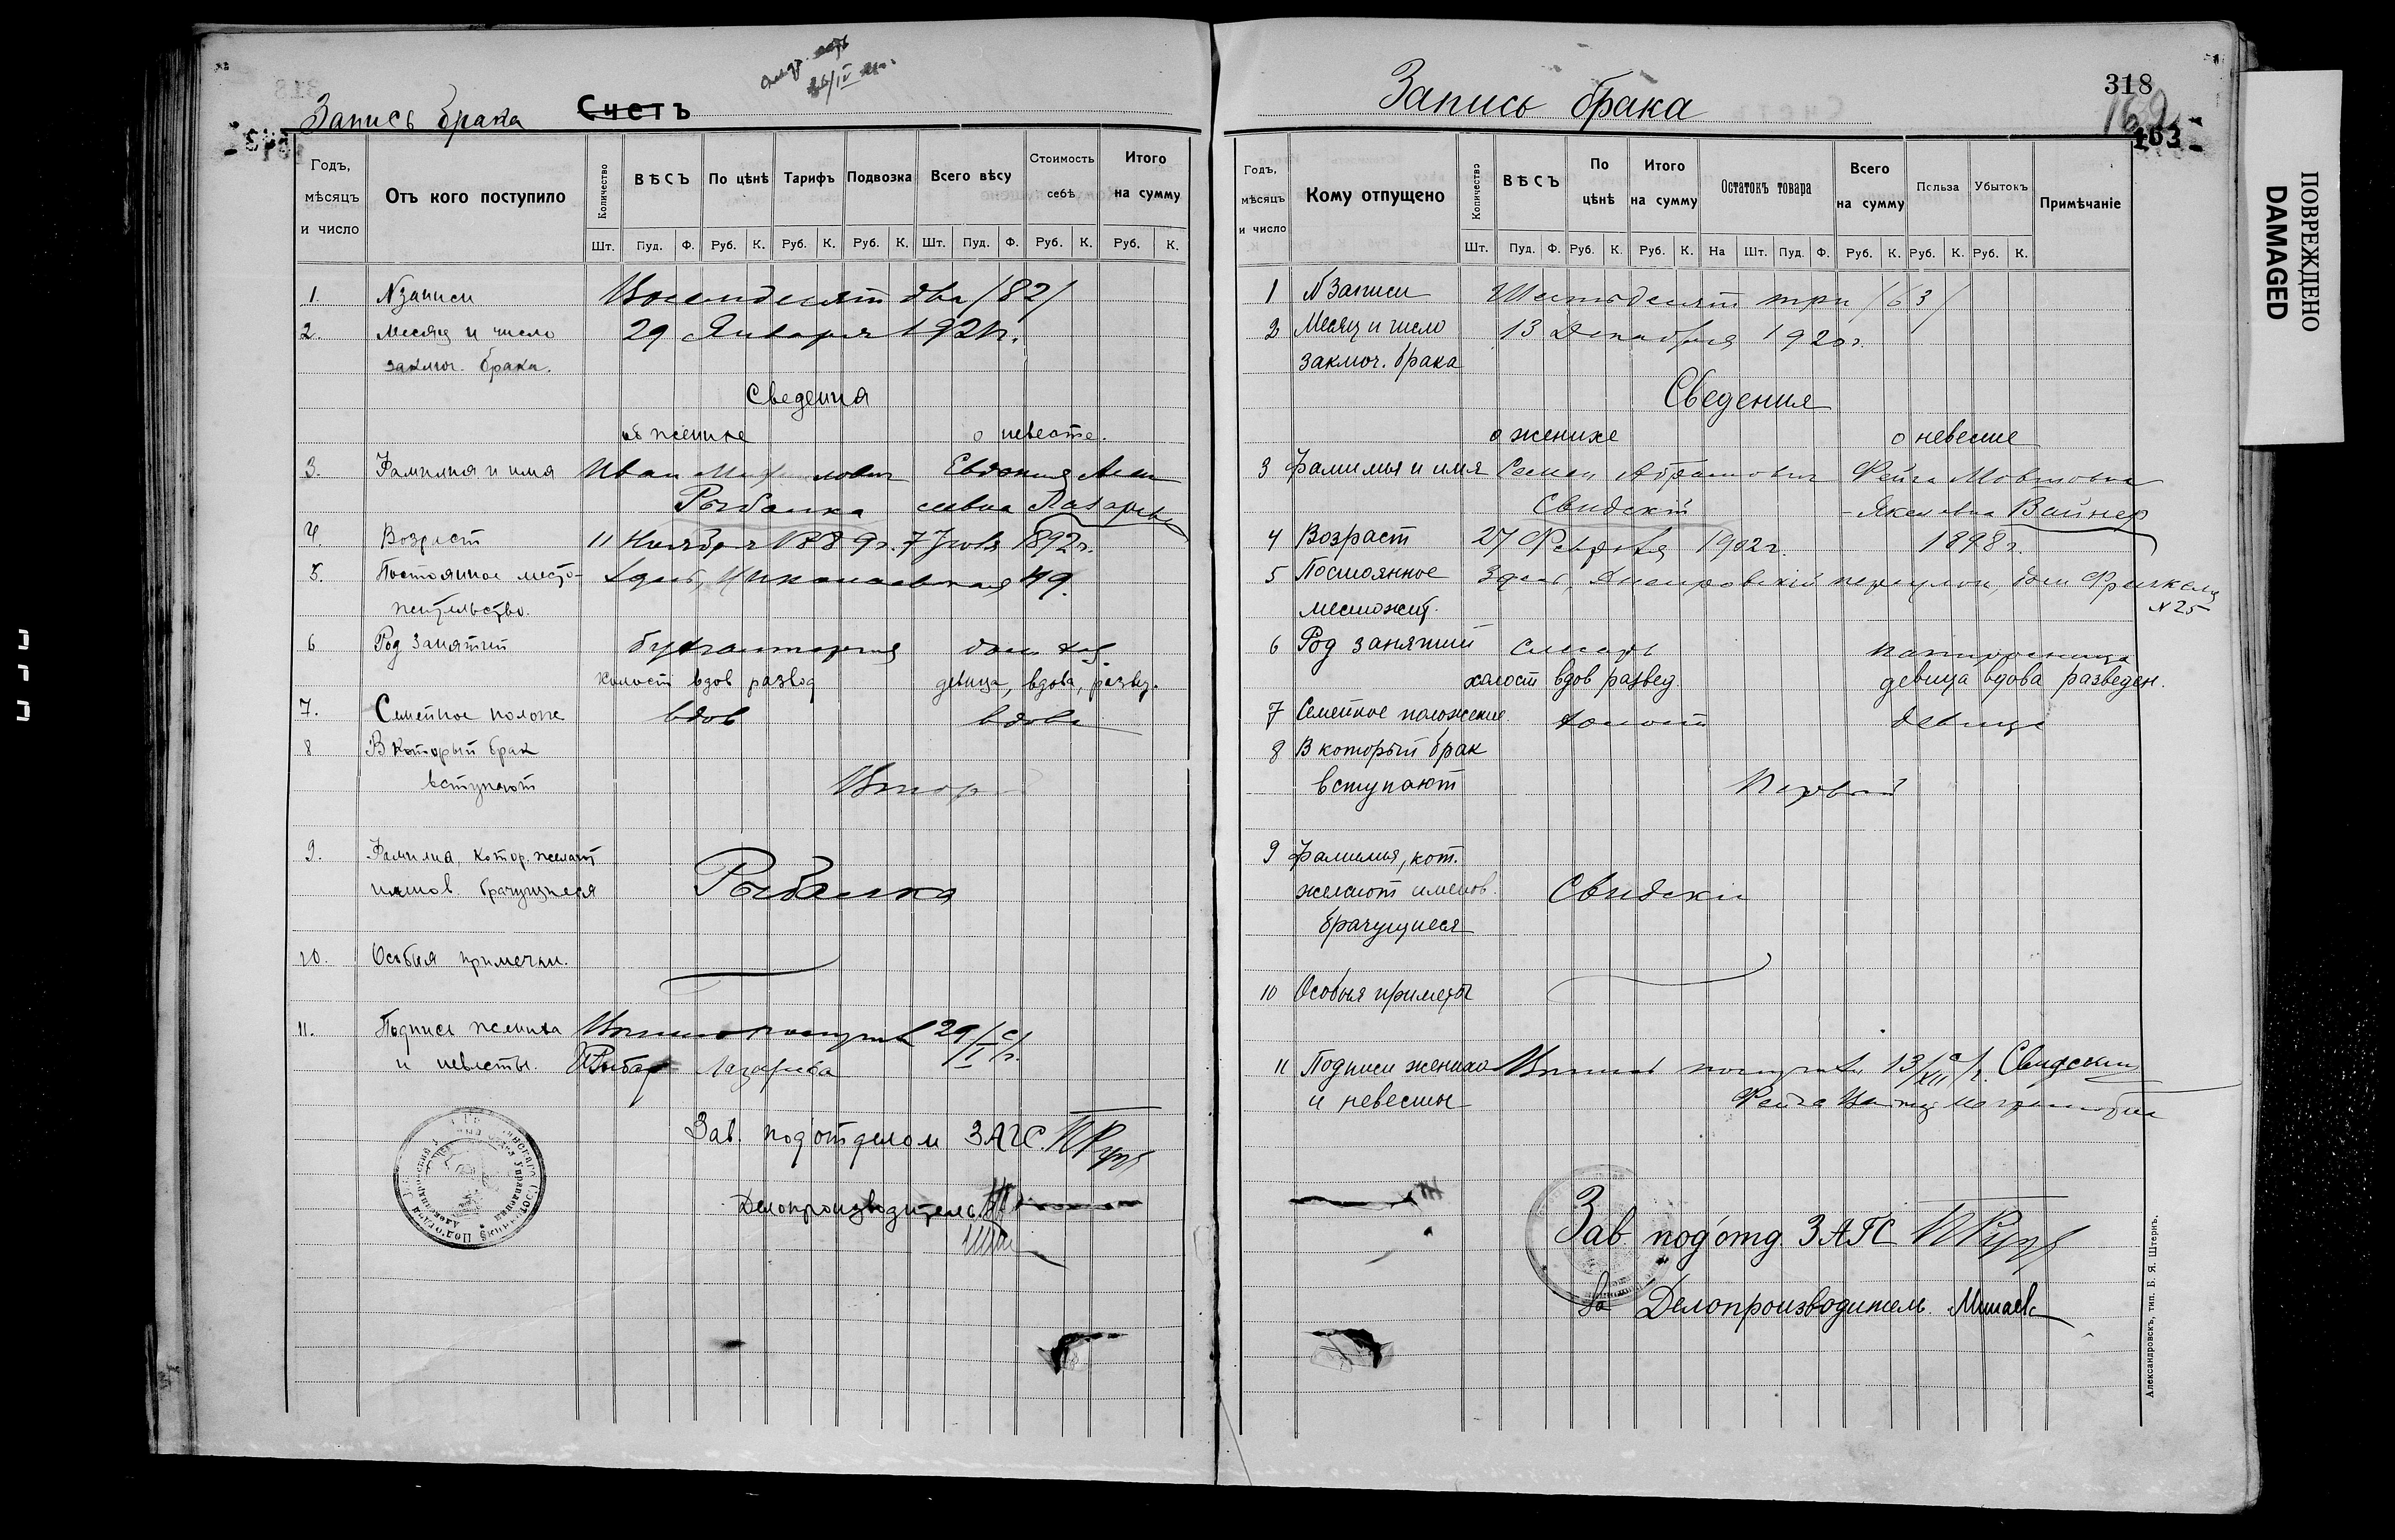 Запись брака Счетъ
Годъ, мѣсяцъ и число
Отъ кого поступило
Количество
ВѢСЪ
По цѣнѣ
Тарифъ
Подвозка
Всего вѣсу
Стоимость себѣ
Итого на сумму
Шт. Пуд. Ф. Руб. К. Руб. К. Руб. К. Шт. Пуд. Ф. Руб. К. Руб. К.
1. N записи Восемдесят два /82/
2. Месяц и число 29 Января 1921г.
заключ. брака.
Сведения
о женихе о невесте.
3. Фамилия и имя Иван Евдокия
Рыбалка Лазарева
4. Возраст 11 Ноября 1889г. 7 1892г.
5. Постоянное место- Здесь, 49.
жительство.
6 Род занятий бухгалтерия дом. хоз.
холост вдов развод девица, вдова, развед.
7. Семейное полож вдов вдова
8 В который брак
вступают Втор
9. Фамилия, котор. желают
имнов. брачущиеся Рыбалка
10. Особыя примечан.
11. Подписи жениха 29/I с/г.
и невесты. Рыбал Лазарева
Зав. под'отделом ЗАГС.
Делопроизводитель
Запись брака
318
169
163
Годъ, мѣсяцъ и число
Кому отпущено
Количество
ВѢСЪ
По цѣнѣ
Итого на сумму
Остатокъ товара
Всего на сумму
Польза
Убытокъ
Примѣчаніе
Шт. Пуд. Ф. Руб. К. Руб. К. На Шт. Пуд. Ф. Руб. К. Руб. К. Руб. К.
1 N Записи Шестьдесят три /63/
2 Месяц и число 13 Декабря 1920г.
заключ. брака
Сведения
о женихе о невесте
3 Фамилия и имя Семен Абрамович Фейга Мовшовна
Свидский Вайнер
4 Возраст 27 Февраля 1902г. 1898г.
5 Постоянное Здесь, Днепровский переулок, дом
местожит. N 25
6 Род занятий Слесарь папиросница
холост вдов развед. девица вдова разведен.
7 Семейное положение холост девица
8 В который брак
вступают Первый
9 Фамилия, кот.
желают именов. Свидски
брачущиеся
10 Особыя приметы
11 Подписи жениха 13/XII с/г. Свидский
и невесты Фейга
Зав. под'отд. ЗАГС
За Делопроизводитель
Александровскъ, тип. Б. Я. Штернъ.
ПОВРЕЖДЕНО
DAMAGED